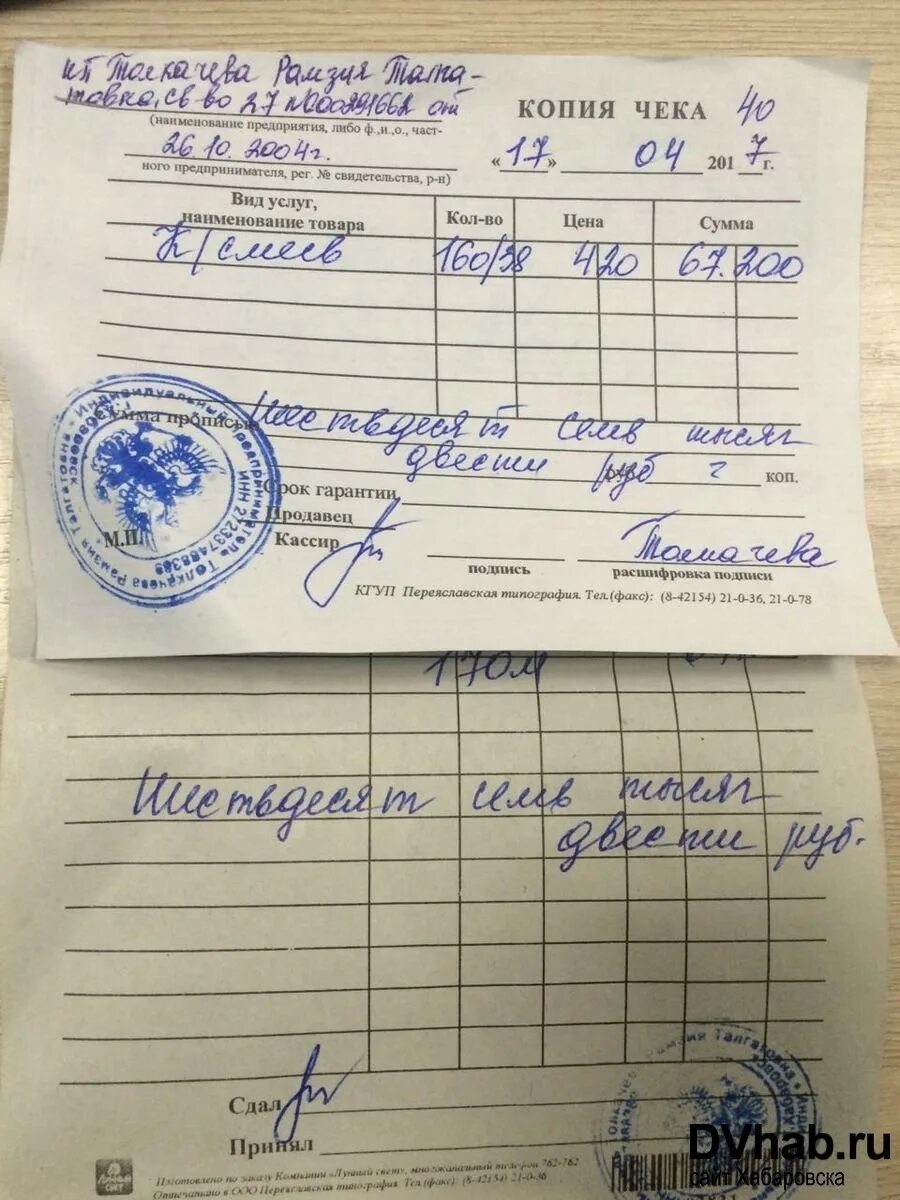 ип Толкачева Рамзия Талга-
товна, св-во 27 №000291662 от
(наименование предприятия, либо ф.,и.,о., част-
26.10.2004г.
ного предпринимателя, рег. № свидетельства, р-н)
КОПИЯ ЧЕКА 40
«17» 04 2017 г.
Вид услуг, наименование товара Кол-во Цена Сумма
К/смесь 160/38 420 67.200
Сумма прописью Шестьдесят семь тысяч
двести руб коп.
Срок гарантии
Продавец
Кассир Толкачева
подпись расшифровка подписи
М.П.
Индивидуальный предприниматель Толкачева Рамзия Талгатовна
г. Хабаровск
КГУП Переяславская типография. Тел.(факс): (8-42154) 21-0-36, 21-0-78
Шестьдесят семь тысяч
двести руб.
Сдал
Принял
Рамзия Талгатовна
Лунный свет
Изготовлено по заказу Компании «Лунный свет», многоканальный телефон 762-762
Отпечатано в ООО Переяславская типография. Тел.(факс): (8-42154) 21-0-36
DVhab.ru
сайт Хабаровска